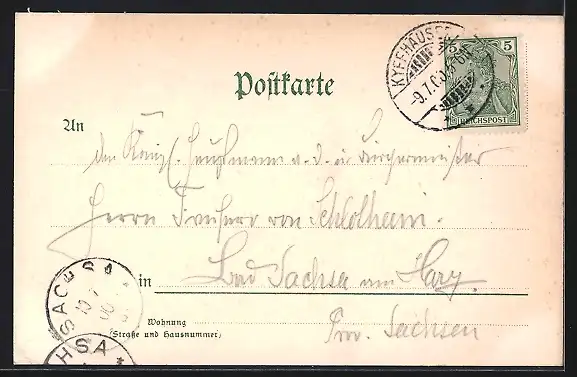 KYFFHÄUSER
-9.7.00.
5 5
REICHSPOST
Postkarte
An
den Königl. Hauptmann a. d. Bürgermeister
Herrn Freiherr von Schlotheim.
in Bad Sachsa am Harz.
Wohnung
(Straße und Hausnummer)
Prov. Sachsen
SACHSA
10 7
00
HSA